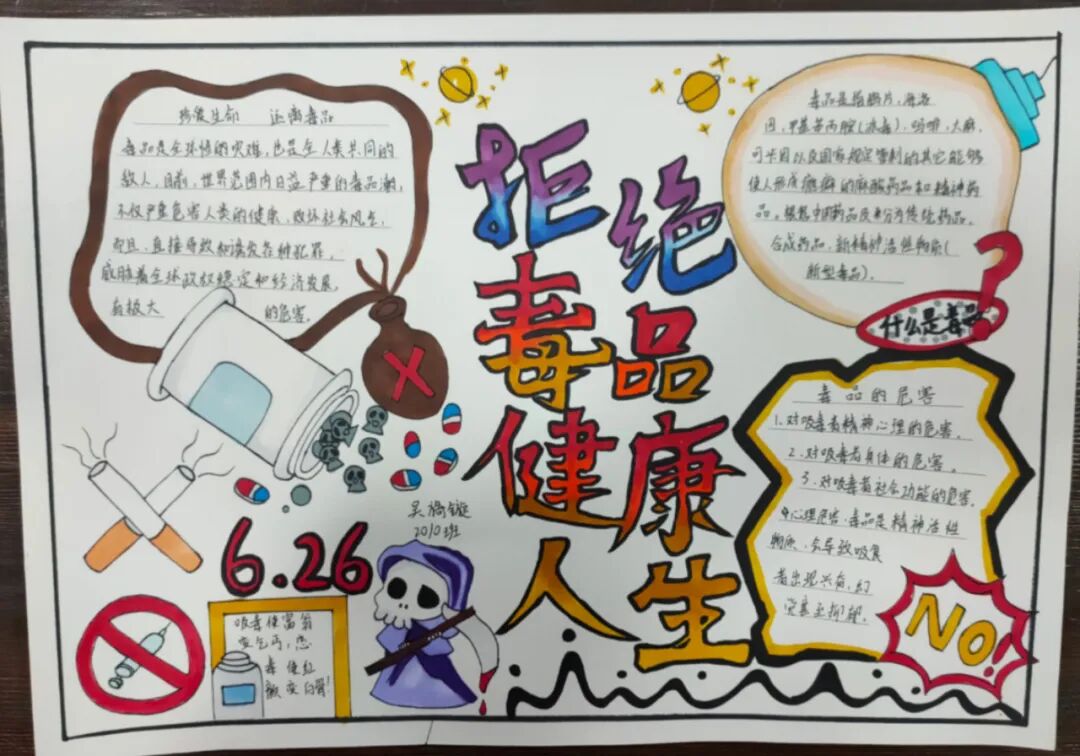 珍爱生命 远离毒品
毒品是全球性的灾难，也是全人类共同的
敌人，目前，世界范围内日益严重的毒品潮，
不仅严重危害人类的健康、败坏社会风气，
而且，直接导致和诱发各种犯罪，
威胁着全球政权稳定和经济发展，
有极大 的危害。
拒绝
毒品
健康
人生
毒品是指鸦片、海洛
因、甲基苯丙胺(冰毒)、吗啡、大麻、
可卡因以及国家规定管制的其它能够
使人形成瘾癖的麻醉药品和精神药
品。根据中国药品 分为传统药品、
合成药品、新精神活性物质(
新型毒品)。
什么是毒品
?
毒品的危害
1.对吸毒者精神心理的危害。
2.对吸毒者身体的危害。
3.对吸毒者社会功能的危害。
4.心理危害，毒品是精神活性
物质，会导致吸食
者出现兴奋，幻
觉甚至抑郁。
NO!
吴 镟
2010班
6.26
吸毒使富翁
变乞丐，恋
毒使红
颜变白骨!